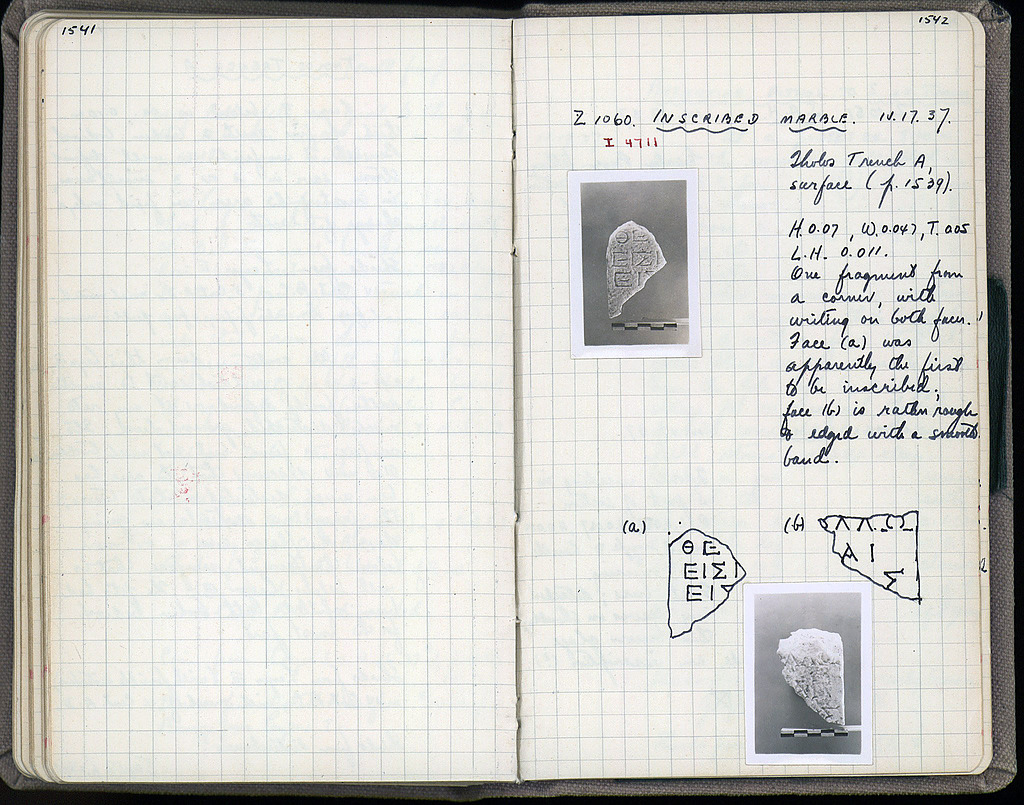 1541
1542
Z 1060. INSCRIBED MARBLE. IV. 17. 37.
I 4711
Tholos Trench A,
surface (p. 1539).
H. 0.07, W. 0.047, T. 0.05
L.H. 0.011.
One fragment from
a corner, with
writing on both faces.
Face (a) was
apparently the first
to be inscribed;
face (b) is rather rough
& edged with a smooth
band.
(a)
ΘΕ
ΕΙΣΙ
ΕΙ
(b)
ΑΙ
Σ